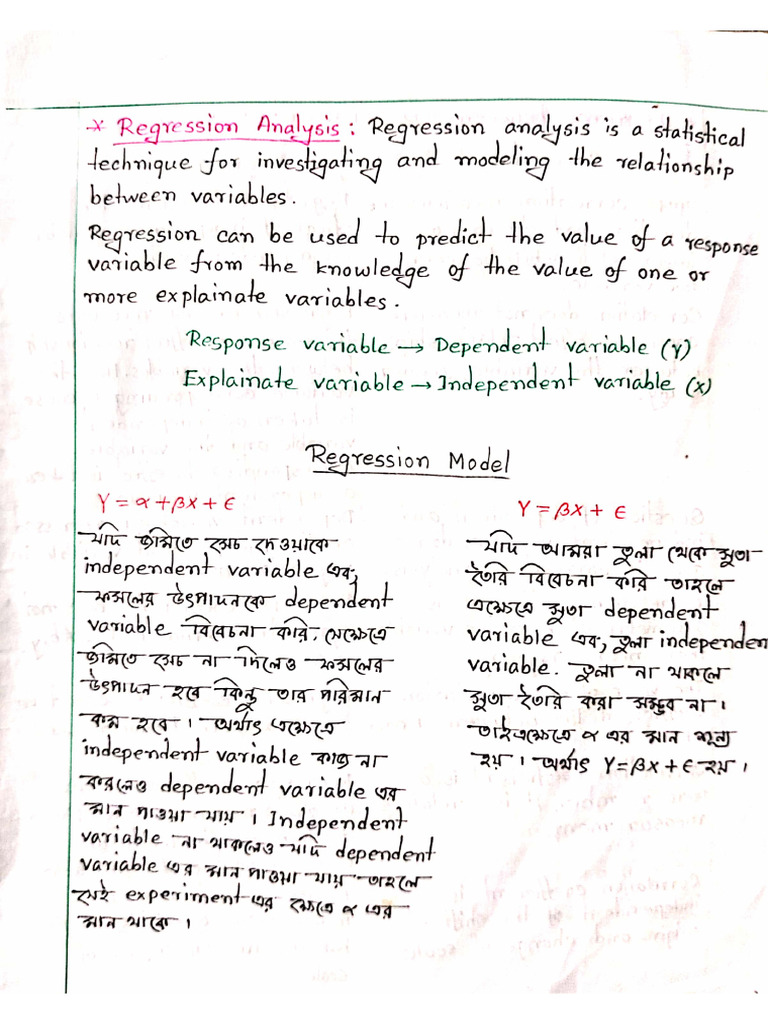 * Regression Analysis: Regression analysis is a statistical
technique for investigating and modeling the relationship
between variables.
Regression can be used to predict the value of a response
variable from the knowledge of the value of one or
more explainate variables.
Response variable → Dependent variable (Y)
Explainate variable → Independent variable (X)
Regression Model
Y = α + βX + ϵ
যদি জমিতে সেচ দেওয়াকে
independent variable এবং
ফসলের উৎপাদনকে dependent
variable বিবেচনা করি, সেক্ষেত্রে
জমিতে সেচ না দিলেও ফসলের
উৎপাদন হবে কিন্তু তার পরিমান
কম হবে। অর্থাৎ এক্ষেত্রে
independent variable কাজ না
করলেও dependent variable এর
মান পাওয়া যায়। Independent
variable না থাকলেও যদি dependent
variable এর মান পাওয়া যায় তাহলে
সেই experiment এর ক্ষেত্রে α এর
মান থাকে।
Y = βX + ϵ
যদি আমরা তুলা থেকে সুতা
তৈরি বিবেচনা করি তাহলে
এক্ষেত্রে সুতা dependent
variable এবং তুলা independen
variable. তুলা না থাকলে
সুতা তৈরি করা সম্ভব না।
তাই এক্ষেত্রে α এর মান শূন্য
হয়। অর্থাৎ Y = βX + ϵ হয়।